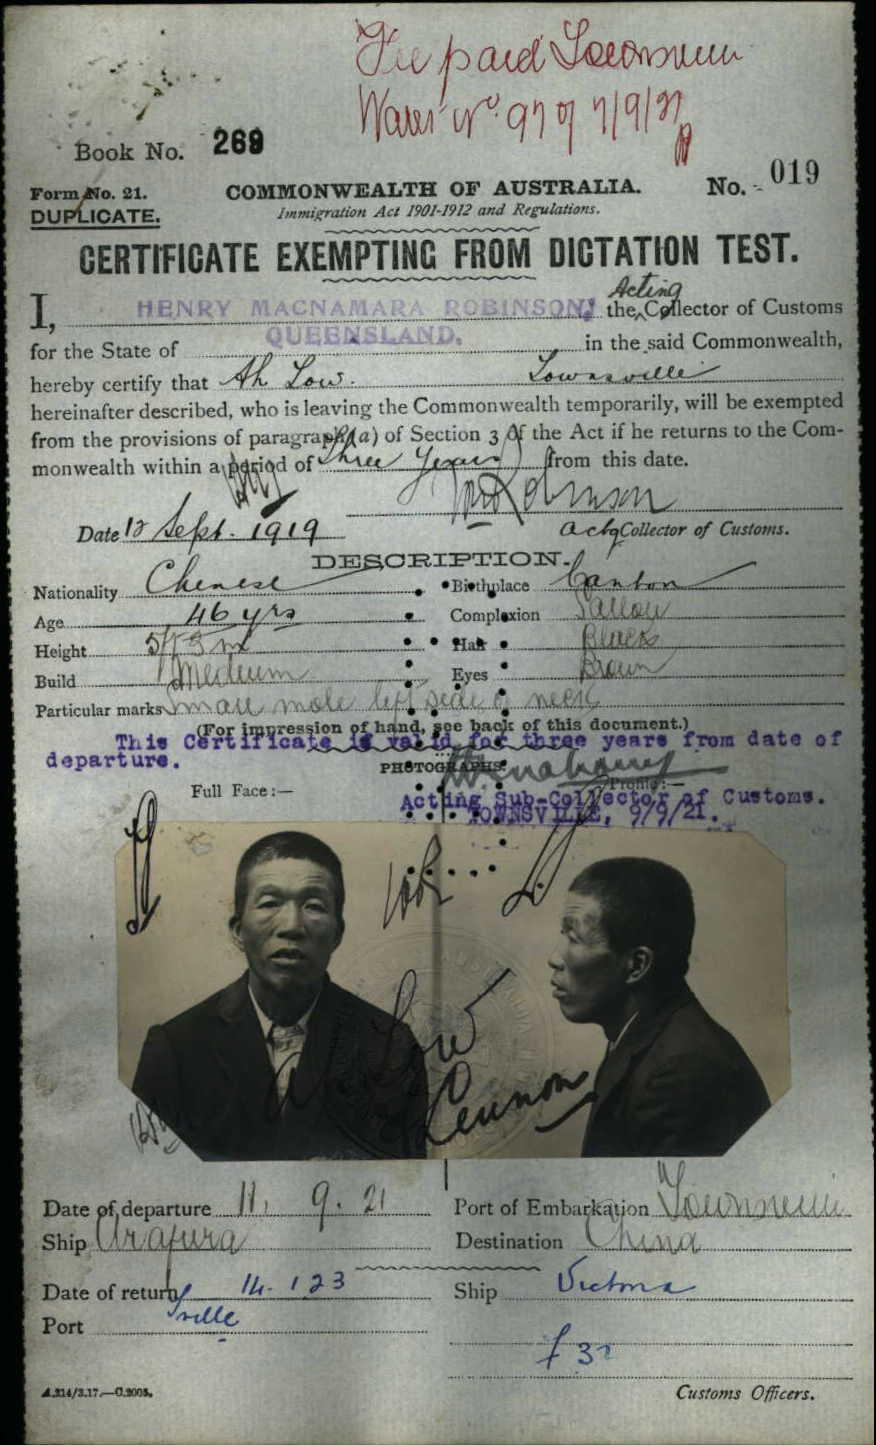 Fee paid Townsville
No. 97 of 7/9/21
Book No. 269
Form No. 21.
COMMONWEALTH OF AUSTRALIA.
No. 019
DUPLICATE.
Immigration Act 1901-1912 and Regulations.
CERTIFICATE EXEMPTING FROM DICTATION TEST.
Acting
I, HENRY MACNAMARA ROBINSON, the Collector of Customs
for the State of QUEENSLAND. in the said Commonwealth,
hereby certify that Ah Low. Townsville
hereinafter described, who is leaving the Commonwealth temporarily, will be exempted
from the provisions of paragraph (a) of Section 3 of the Act if he returns to the Com-
monwealth within a period of Three Years from this date.
Robinson
Date 12 Sept. 1919 Actg Collector of Customs.
DESCRIPTION.
Nationality Chinese Birthplace Canton
Age 46 yrs Complexion Sallow
Height 5ft 3 in Hair Black
Build Medium Eyes Brown
Particular marks Small mole left side of neck
(For impression of hand, see back of this document.)
This Certificate is valid for three years from date of
departure.
PHOTOGRAPHS.
Full Face:— Profile:—
Acting Sub-Collector of Customs.
TOWNSVILLE, 9/9/21.
Ah Low
Date of departure 11. 9. 21 Port of Embarkation Townsville
Ship Arafura Destination China
Date of return 14. 1 23 Ship Victoria
Port Tville
Customs Officers.
A.214/3.17.—C.2005.